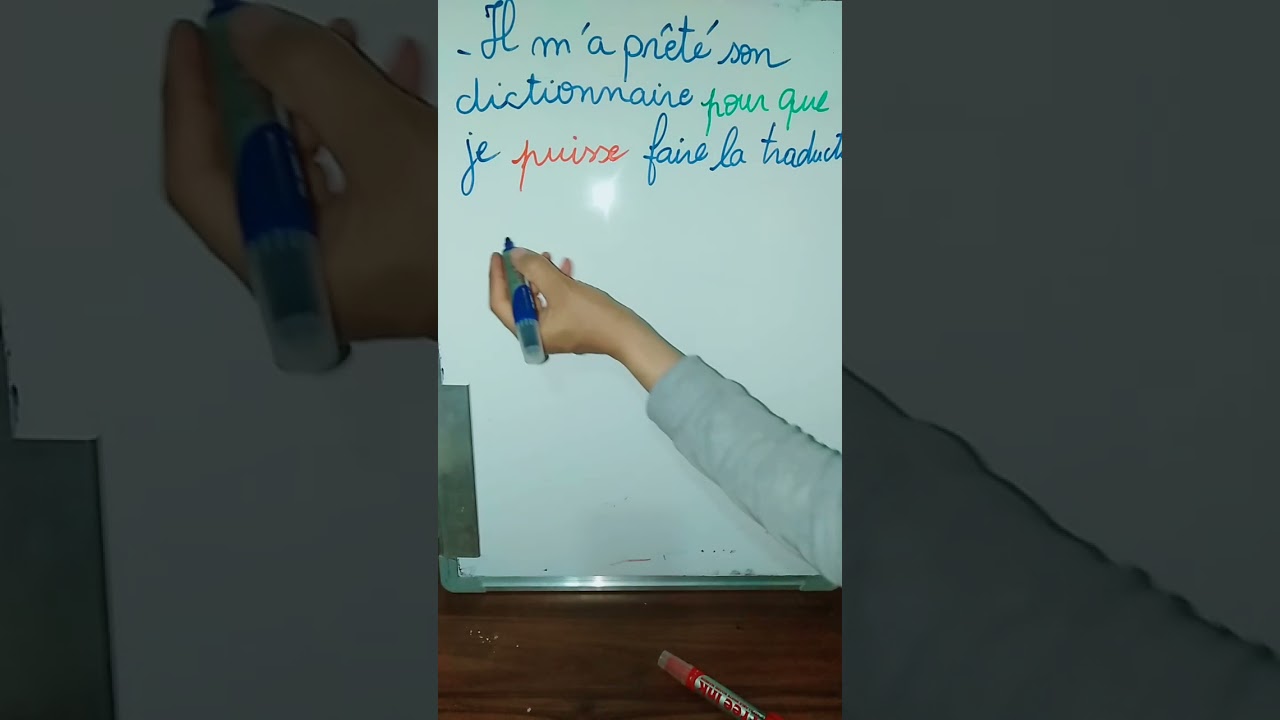 - Il m'a prêté son
dictionnaire pour que
je puisse faire la traduct
free ink